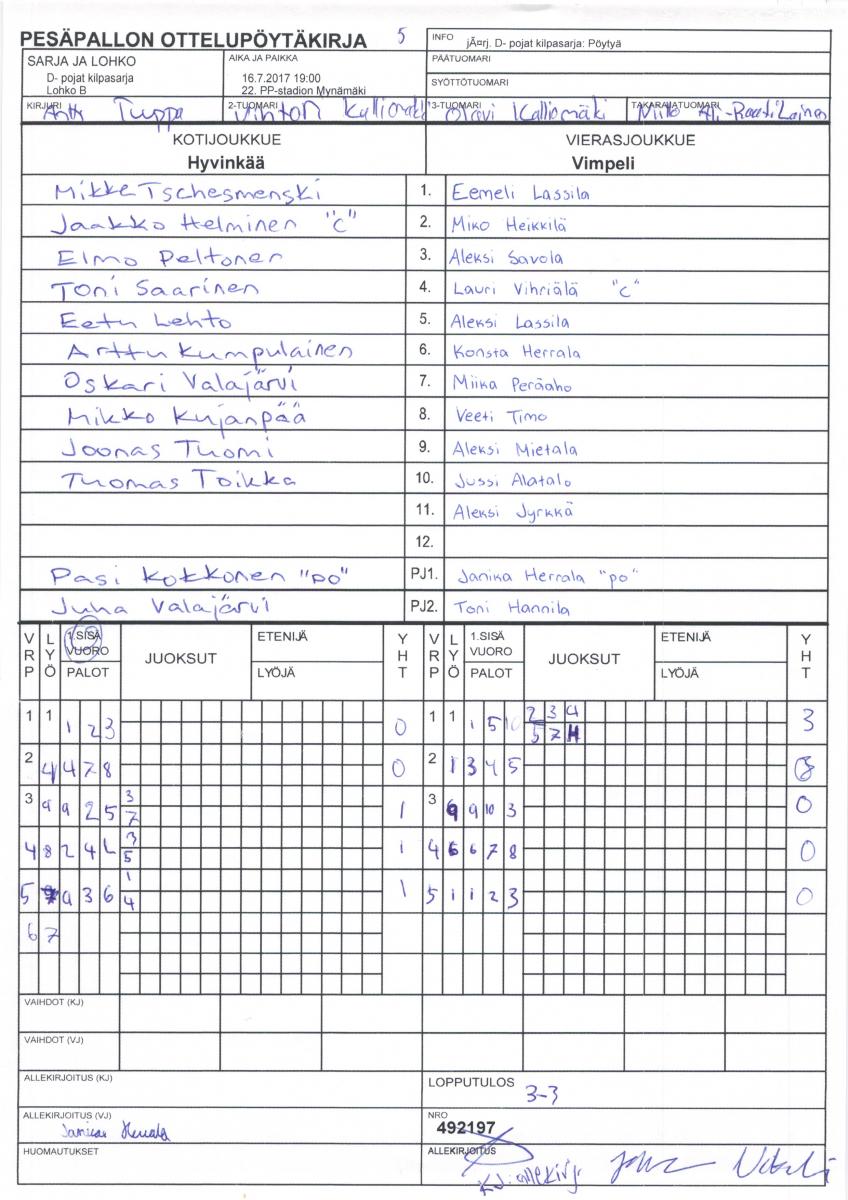 PESÄPALLON OTTELUPÖYTÄKIRJA 5
INFO jÃ¤rj. D- pojat kilpasarja: Pöytyä
SARJA JA LOHKO
D- pojat kilpasarja
Lohko B
AIKA JA PAIKKA
16.7.2017 19:00
22. PP-stadion Mynämäki
PÄÄTUOMARI
SYÖTTÖTUOMARI
KIRJURI Tuppa
2-TUOMARI
3-TUOMARI Olavi Kalliomäki
TAKARAJATUOMARI
KOTIJOUKKUE VIERASJOUKKUE
Hyvinkää Vimpeli
Mikke Tschesmenski 1. Eemeli Lassila
Jaakko Helminen "C" 2. Miko Heikkilä
Elmo Peltonen 3. Aleksi Savola
Toni Saarinen 4. Lauri Vihriälä "C"
Eetu Lehto 5. Aleksi Lassila
Arttu Kumpulainen 6. Konsta Herrala
Oskari Valajärvi 7. Miika Peräaho
Mikko Kujanpää 8. Veeti Timo
Joonas Tuomi 9. Aleksi Mietala
Tuomas Toikka 10. Jussi Alatalo
11. Aleksi Jyrkkä
12.
Pasi Kokkonen "po" PJ1. Janika Herrala "po"
Juha Valajärvi PJ2. Toni Hannila
VRP LYÖ 1.SISÄ VUORO PALOT JUOKSUT ETENIJÄ LYÖJÄ YHT VRP LYÖ 1.SISÄ VUORO PALOT JUOKSUT ETENIJÄ LYÖJÄ YHT
1 1 1 2 3 0 1 1 1 5 10 2 3 4 3
5 7 H
2 4 4 7 8 0 2 1 3 4 5
3 9 9 2 5 3 1 3 9 9 10 3 0
7
4 8 2 4 L 3 1 4 6 6 7 8 0
5
5 9 3 6 1 1 5 1 1 2 3 0
4
6 7
VAIHDOT (KJ)
VAIHDOT (VJ)
ALLEKIRJOITUS (KJ)
LOPPUTULOS 3-3
ALLEKIRJOITUS (VJ)
NRO
492197
HUOMAUTUKSET
ALLEKIRJOITUS
KJ:allekirj.